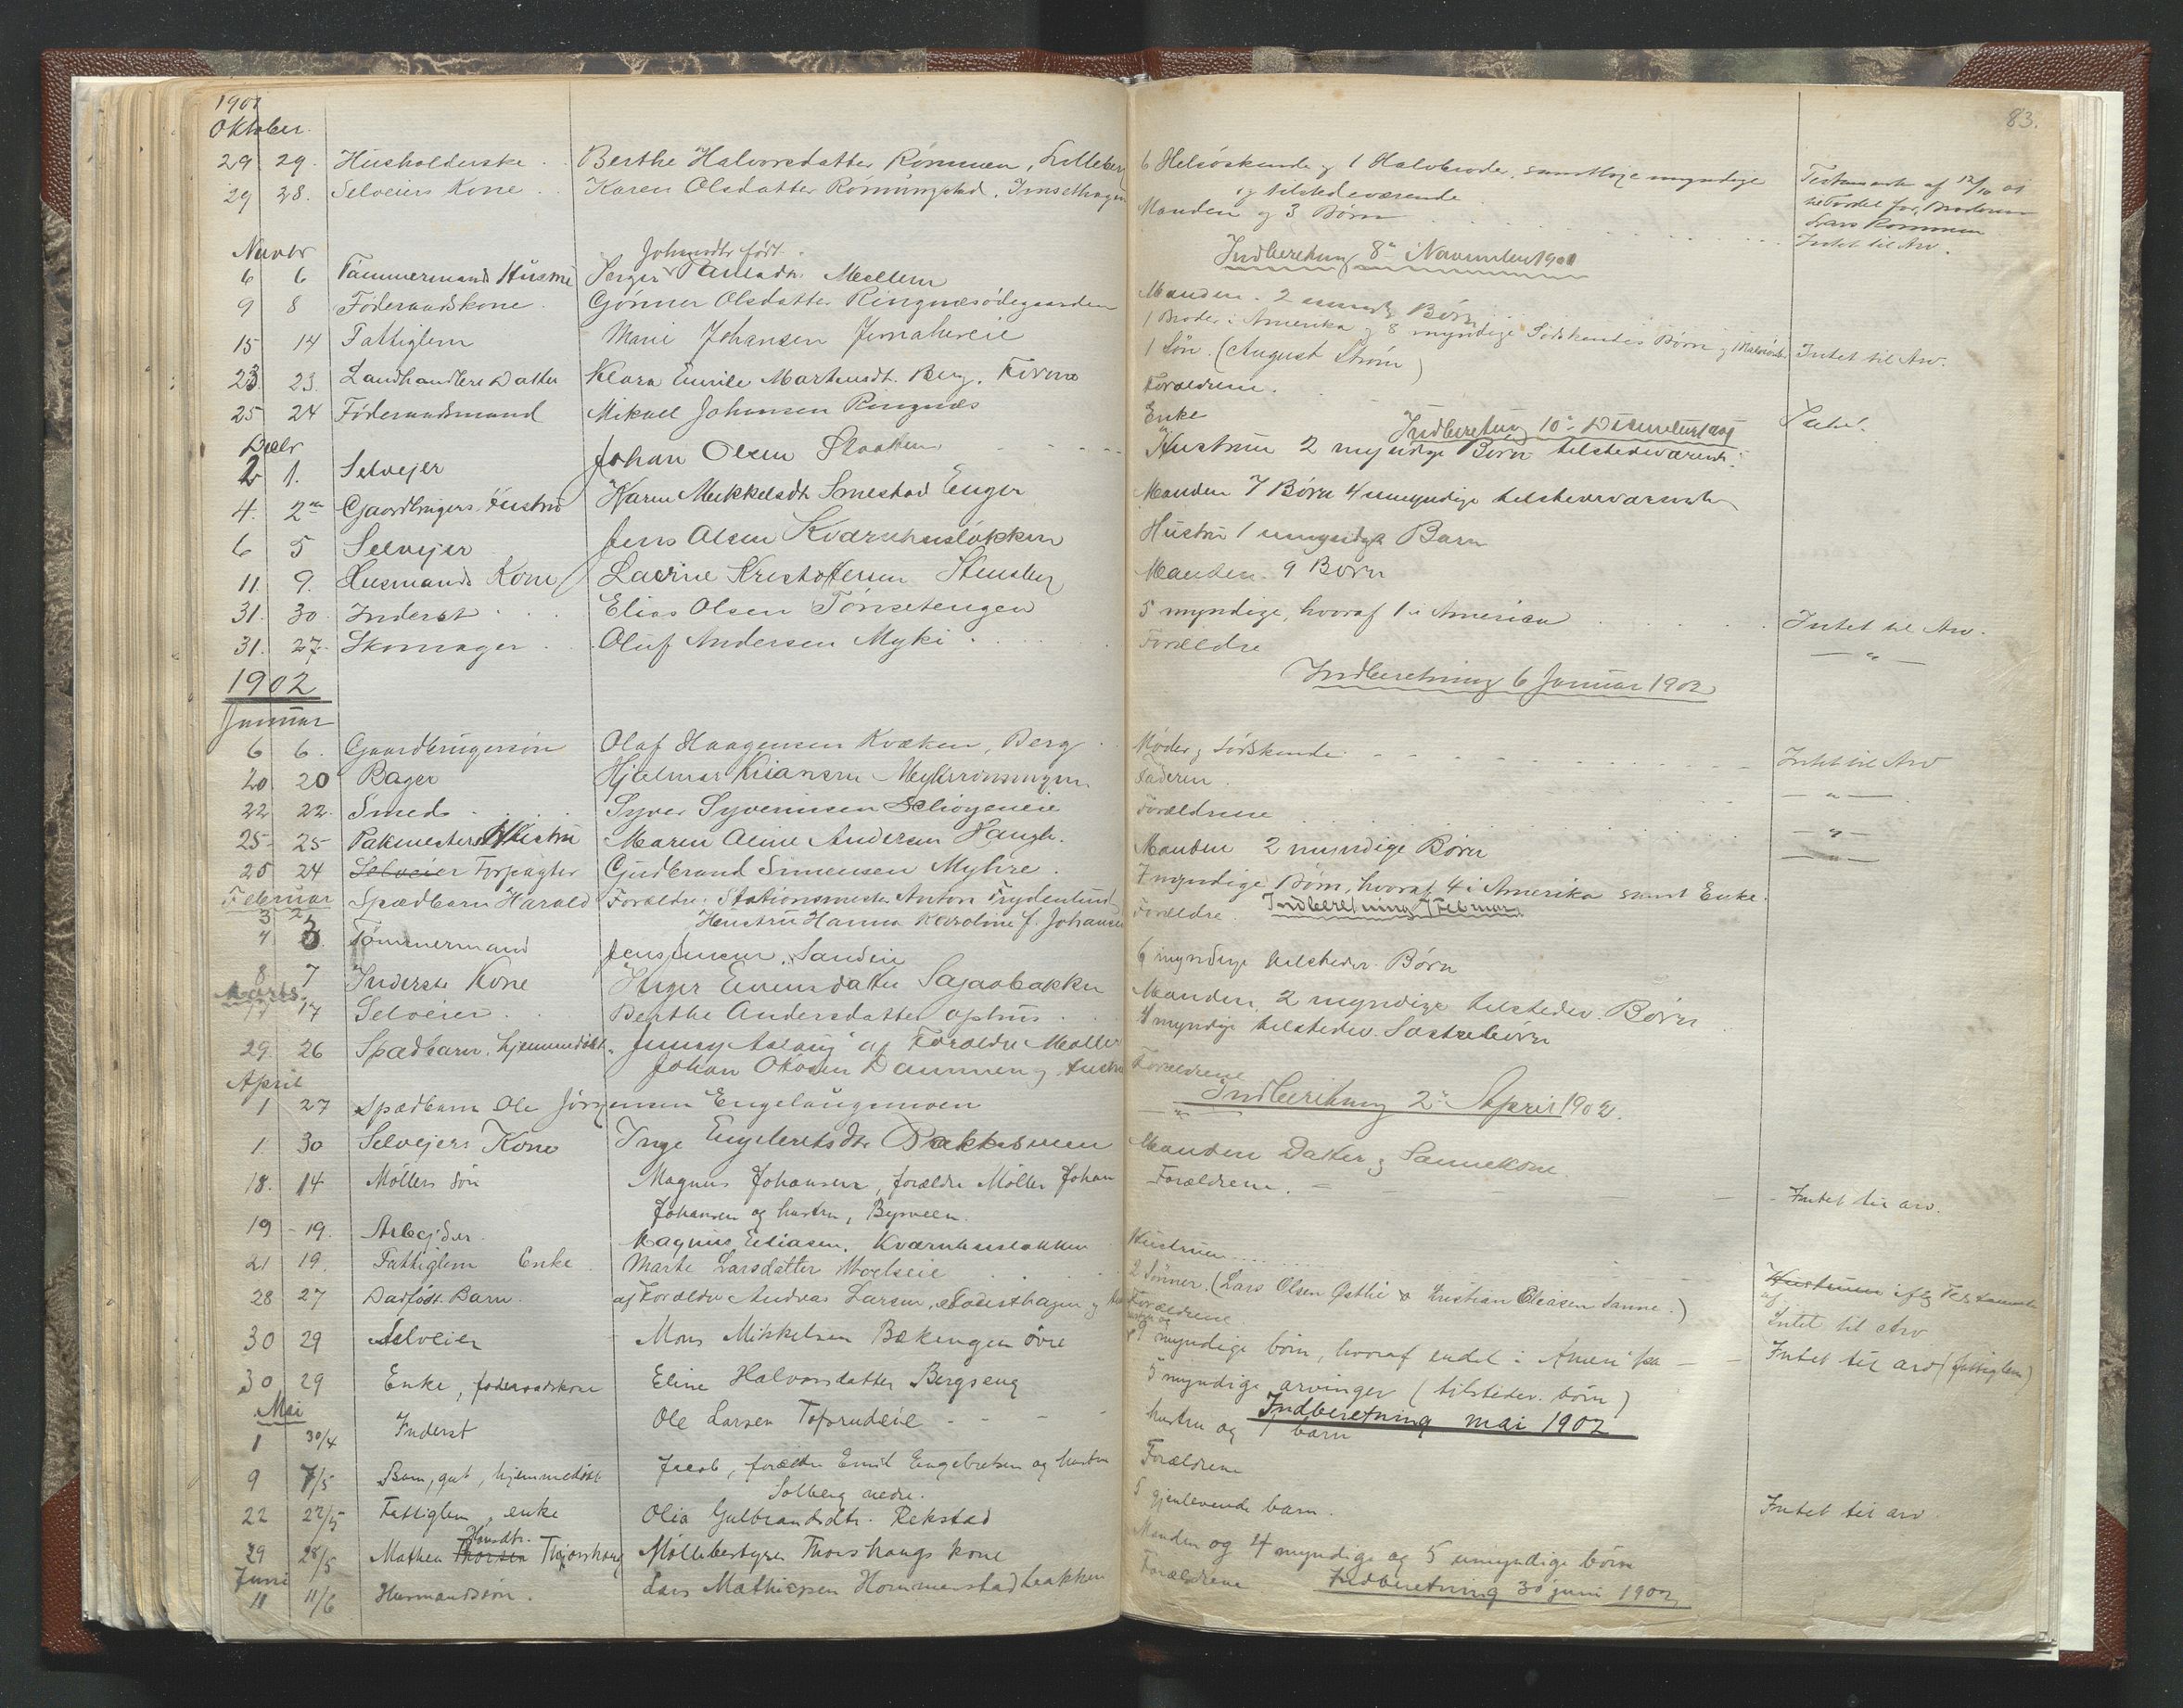 1901
Oktober.
29 29. Husholderske . . Berthe Halvorsdatter Rommen, Lilleberg
29 28. Selveiers Kone . . Karen Olsdatter Imsethagen
Novbr
født
6 6 Tømmermands Hustru Mællum
9 8 Føderaadskone . Gønner Olsdatter Ringnæsødegaarden
15 14 Fattiglem Marie Johansen
23 23. Landhandlers Datter Klara Emilie Martensdt. Berg.
25 24 Føderaadsmand Mikael Johansen Ringnæs
Decbr
2 1. Selvejer Johan Olsen
4. 2den Gaardbrugers Hustru Karen Mikkelsdt Smestad Enger
6 5 Selvejer Jens Olsen Kværnhusløkken
11. 9. Husmands Kone Lovrine Kristoffersen Stensby
31. 30 Inderst . . . Elias Olsen Tønsetengen
31. 27. Skomager . . Oluf Andersen Myki . . .
1902
Januar
6 6. Gaardbrugersøn Olaf Haagensen Kvæken, Berg .
20 20 Bager Hjalmar
22 22. Smed . . . Syver Syvertsen
25- 25- Pakmesters Hustru Maren Aline Andersen Haugli.
25 24 Selveier Forpagter Gudbrand Simensen Myhre .
Februar Spædbarn Harald Forældre: Stationsmester Anton Frydenlund
3 2 Hustru Hanna Karoline f. Johansen
4 3. Tømmermand Jens Jensen, Sandeie
8 7 Inderste Kone Inger Evensdatter Sagaabakken
Marts
17 Selveier . . Berthe Andersdatter Ophus . . .
29. 26 Spædbarn, hjemmedøbt "Jenny Aslaug" af Forældre Møller
Johan Ottosen Dammen og Hustru
April
1 27 Spædbarn Ole Jørgensen Engelaugsmoen
1. 30 Selvejers Kone Inge Engebretsdtr
18. 14 Møllers søn Magnus Johansen, forældre Møller Johan
Johansen og hustru,
19 - 19. Arbejder. Magnus Eliasen, Kværnhusløkken
21 19. Fattiglem Enke . Marte Larsdatter Moelseie . . .
28 27 Dødfødt. Barn. af Forældre Andreas Larsen,
30 29 Selveier Mons Mikkelsen Bækengen øvre
30 29 Enke, føderaadskone Eline Halvorsdatter Bergseng
Mai
1 30/4 Inderst Ole Larsen Tofsrudeie - - -
9 7/5 Barn, gut, hjemmedøbt Jacob, forældre Emil Engebretsen og hustru
Solberg nedre.
22 22/5 Fattiglem, enke Olia Gulbrandsdtr. Rekstad
Hansdtr.
29 28/5 Mathea Thorsen Thorshaug Møllebestyrer Thorshaugs kone
Juni
11 11/6 Husmandssøn . Lars Mathiesen Hommerstadbakken
83.
6 Helsøskende og 1 Halvbroder, samtlige myndige
og tilstedeværende
Testament af 12/10 01
til Fordel for Broderen
Lars Rommen
Manden og 3 Børn . . . . Intet til Arv.
Indberetning 8de November 1901
Manden. 2 Børn
1 Broder i Amerika og 8 myndige Søskendes Børn og 1 Intet til Arv.
1 Søn. (August Strøm)
Forældrene.
Enke
Indberetning 10de December 1901
Hustruen 2 myndige Børn tilstedeværende.
Manden 7 Børn 4 umyndige tilstedeværende
Hustru 1 umyndigt Barn
Manden. 9 Børn
5 myndige, hvoraf 1 i Amerika . . . . . Intet til Arv.
Forældre — " —
Indberetning 6 Januar 1902
Moder og Søskende - - - Intet til Arv
Faderen . . . — " —
Forældrene . . . — " —
Manden 2 myndige Børn — " —
7 myndige Børn, hvoraf 4 i Amerika samt Enke.
Forældre. Indberetning 7 Februar
6 myndige tilstedev. Børn
Manden, 2 myndige tilstedev. Børn
4 myndige tilstedev. Søsterbørn
Forældrene
Indberetning 2de April 1902.
— " —
Manden Datter og Sønnekone
Forældrene. - - - Intet til arv.
Hustruen . . . Hustruen iflg Testamente
af
2 Sønner. (Lars Olsen Østlie & Kristian Eliasen Sanne.) Intet til Arv
Forældrene.
9 myndige børn, hvoraf endel i Amerika — — Intet til arv (fattiglem)
5 myndige arvinger (tilstedev. børn)
Indberetning mai 1902
hustru og 1 barn
Forældrene
5 gjenlevende barn. Intet til arv
Manden og 4 myndige og 5 umyndige børn
Forældrene Indberetning 30 juni 1902